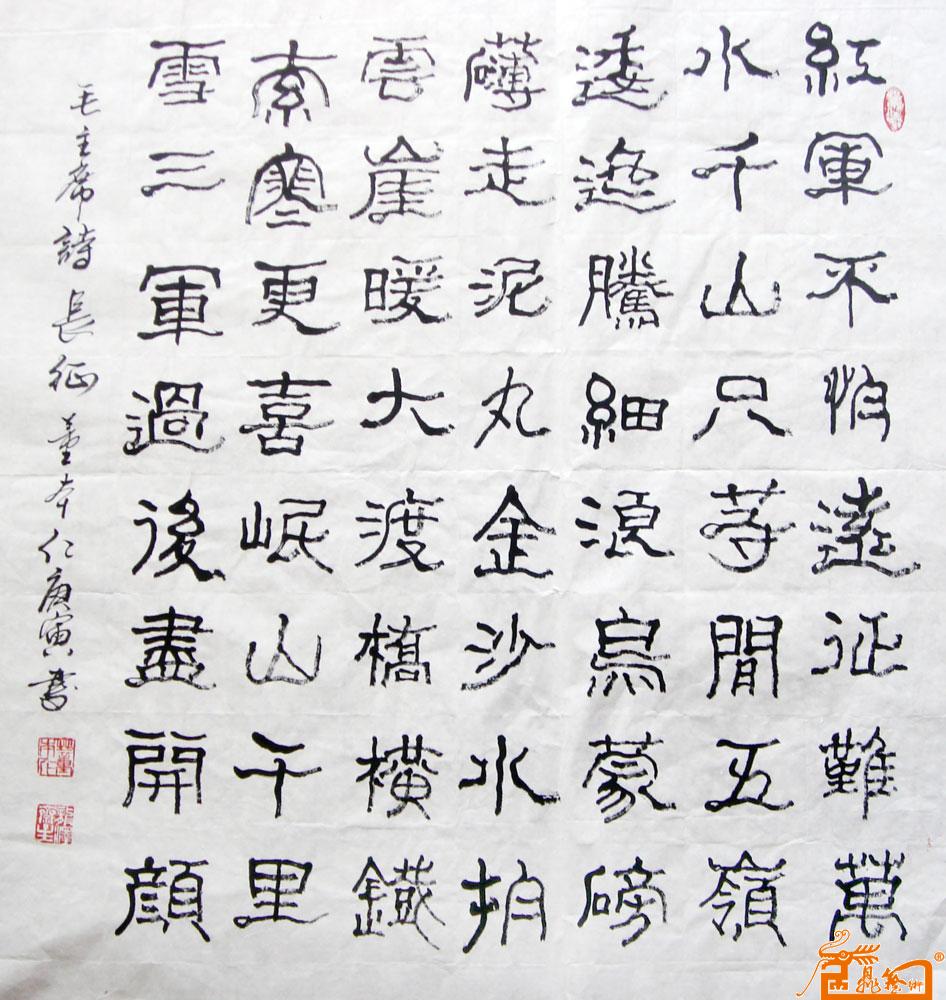 紅軍不怕遠征難萬
水千山只等間五嶺
逶迤騰細浪烏蒙磅
礴走泥丸金沙水拍
雲崖暖大渡橋橫鐵
索寒更喜岷山千里
雪三軍過後盡開顏
毛主席詩 長征 董本仁庚寅書